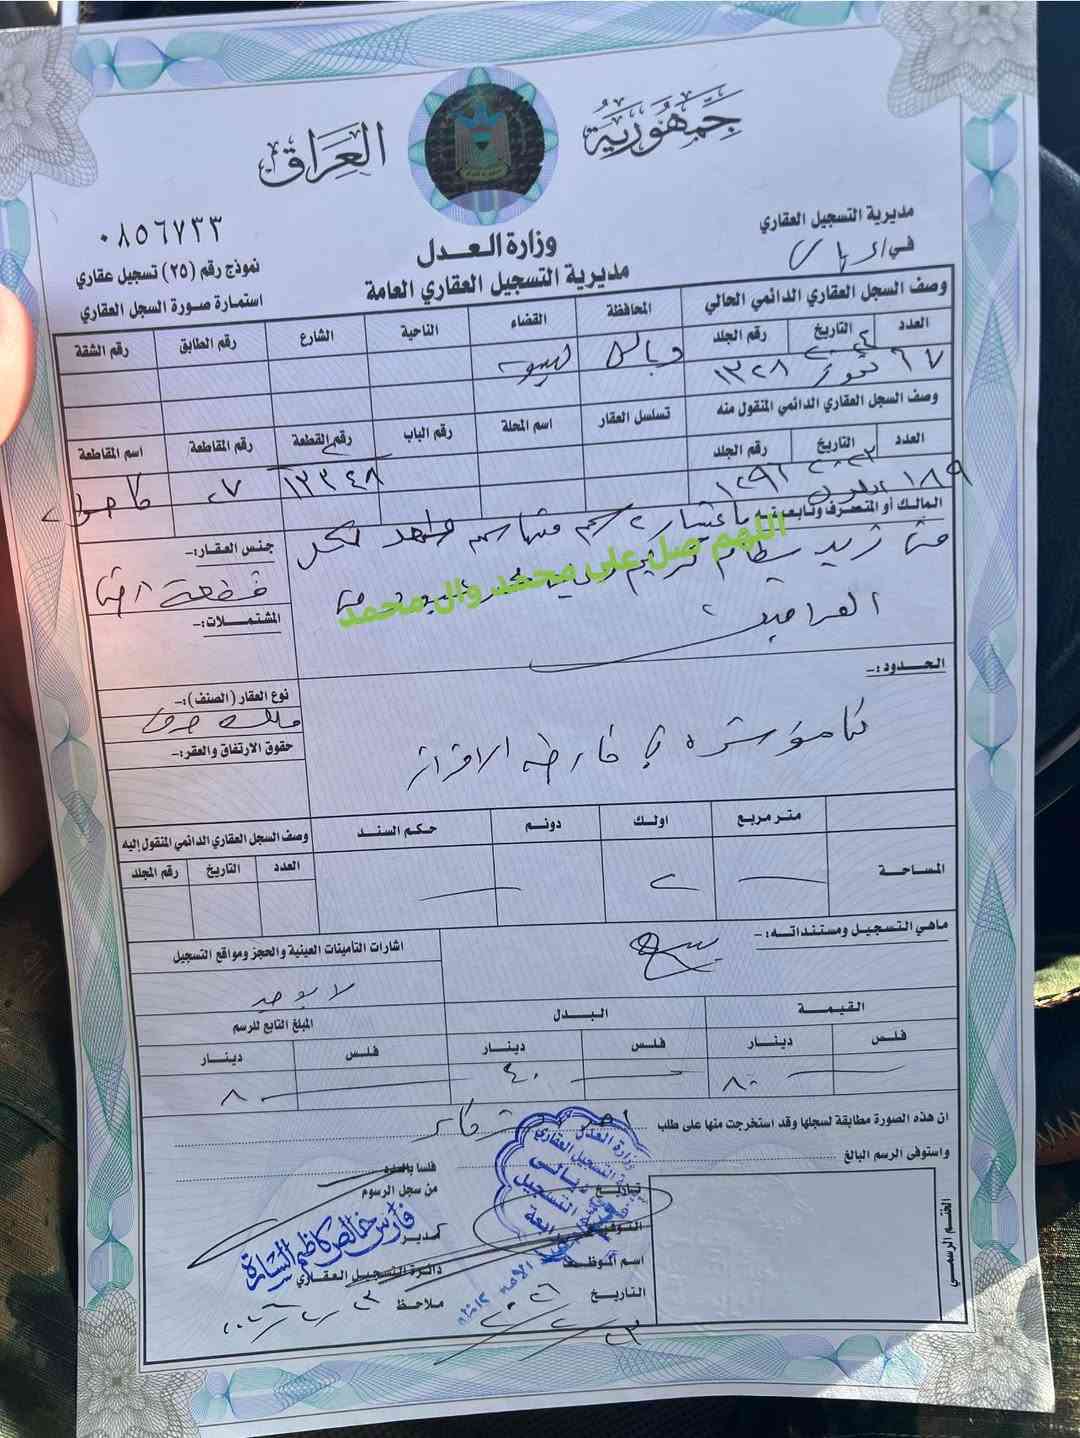 جمهورية العراق
وزارة العدل
مديرية التسجيل العقاري العامة
مديرية التسجيل العقاري
في /
٠٨٥٦٧٣٣
نموذج رقم (٢٥) تسجيل عقاري
استمارة صورة السجل العقاري
وصف السجل العقاري الدائمي الحالي
المحافظة القضاء الناحية الشارع رقم الطابق رقم الشقة
العدد التاريخ رقم الجلد
ديالى
٦٧ تموز ٢٠٢٤ ١٣٢٨
وصف السجل العقاري الدائمي المنقول منه
تسلسل العقار اسم المحلة رقم الباب رقم القطعة رقم المقاطعة اسم المقاطعة
العدد التاريخ رقم الجلد
١٨٩ ايلول ٢٠٢٣ ١٢٩٢
١٣٣٤٨ ٢٧
المالك أو المتصرف وتابعيته
باعتبار ٢ سهم منها سهم واحد لكل
من زيد سطام كريم
اللهم صل على محمد وال محمد
جنس العقار:-
قطعة ارض
المشتملات:-
الحدود:-
كما مؤشره في خارطة الافراز
نوع العقار (الصنف):-
ملك صرف
حقوق الارتفاق والعقر:-
متر مربع اولك دونم حكم السند
المساحة
٢
وصف السجل العقاري الدائمي المنقول إليه
العدد التاريخ رقم المجلد
ماهي التسجيل ومستنداته:-
بيع
اشارات التأمينات العينية والحجز ومواقع التسجيل
لا يوجد
القيمة البدل المبلغ التابع للرسم
فلس دينار فلس دينار فلس دينار
٨٠ ٤٠ ٨٠
ان هذه الصورة مطابقة لسجلها وقد استخرجت منها على طلب
واستوفى الرسم البالغ
فلسا بالعدد
من سجل الرسوم
بتاريخ
التوقيع
اسم الموظف
التاريخ
٢٠٢٦/٢/٢٣
مدير
فارس خالص كاظم
دائرة التسجيل العقاري
ملاحظ
٢٠٢٦/٢/٢٣
الختم الرسمي
وزارة العدل
التسجيل العقاري
ديالى
التسجيل